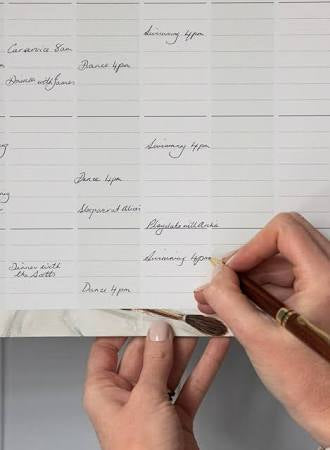 Swimming 4pm
Car service 8am
Dance 4pm
Dinner with James
Swimming 4pm
Dance 4pm
Sleepover at Alices
Playdate with
Swimming 4pm
Dinner with
the Scotts
Dance 4pm